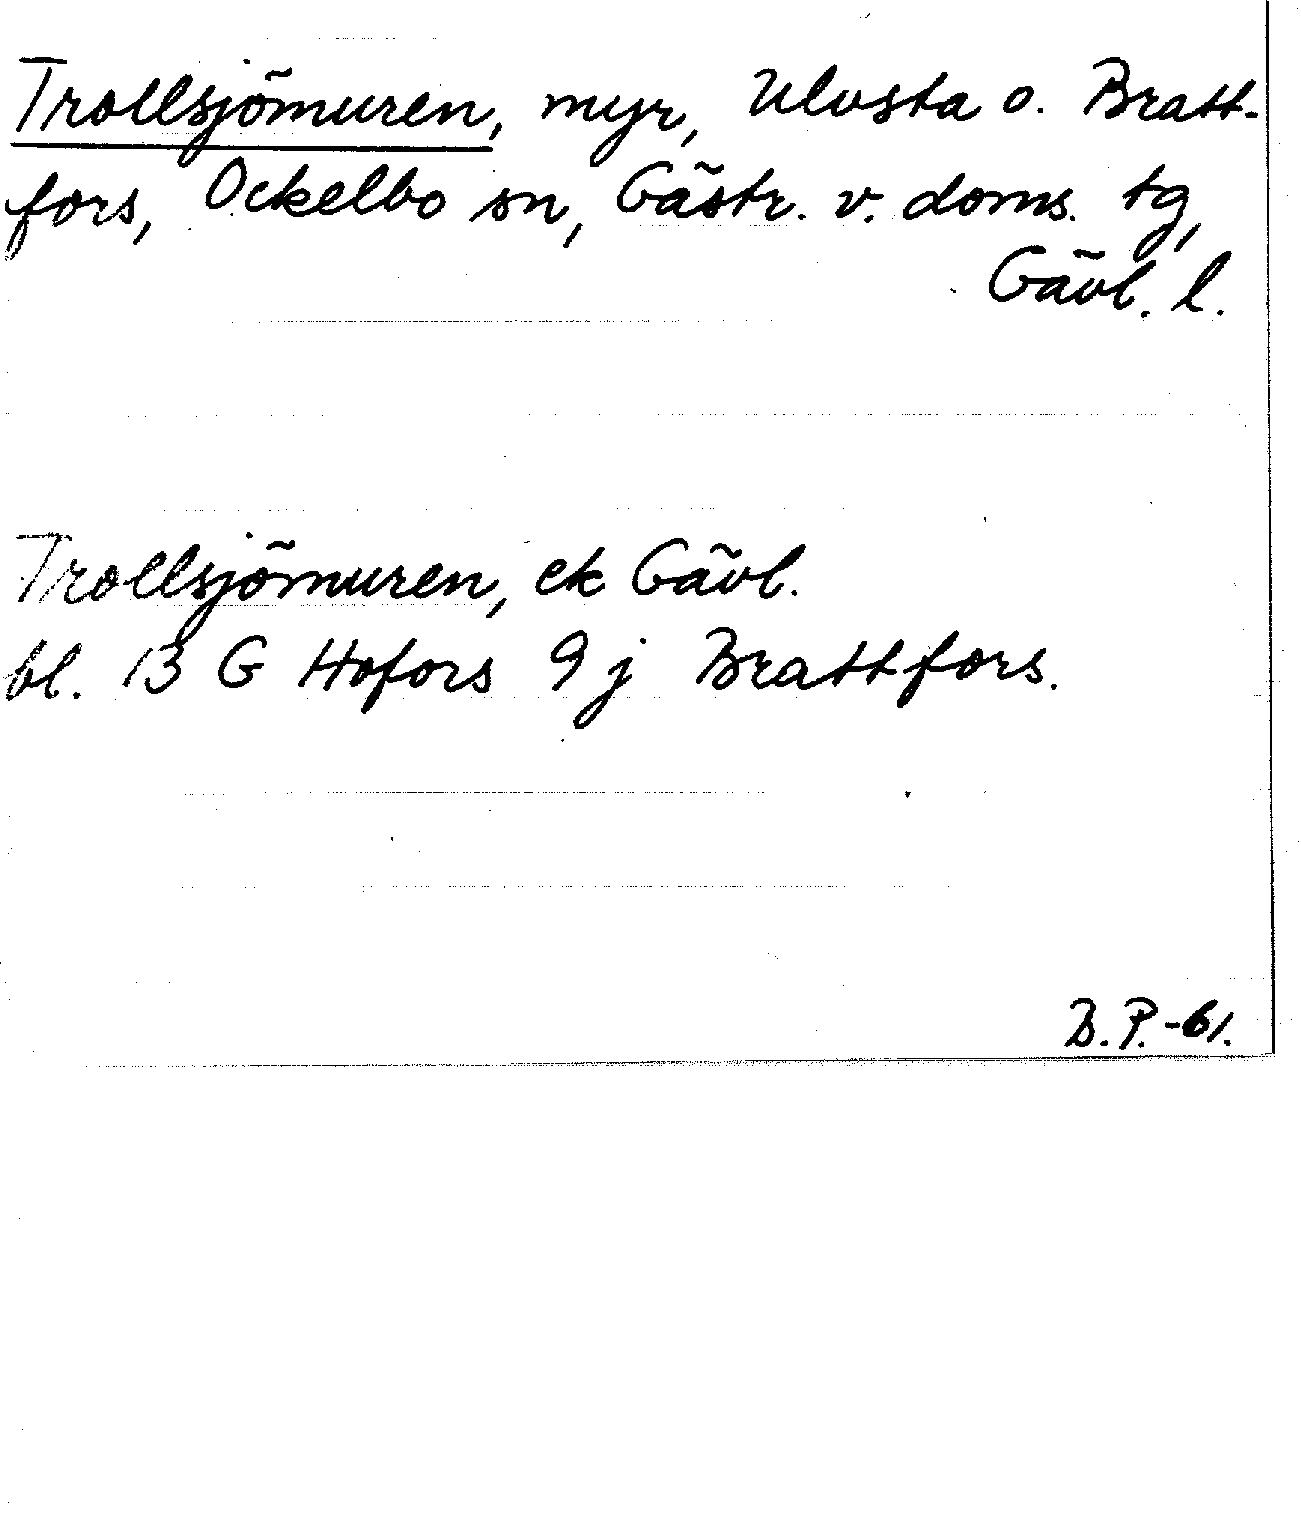 Trollsjömuren, myr, Ulvsta o. Bratt-
fors, Ockelbo sn, Gästr. v. doms. tg,
Gävl. l.
Trollsjömuren, ek Gävl.
bl. 13 G Hofors 9 j Brattfors.
B. P. -61.